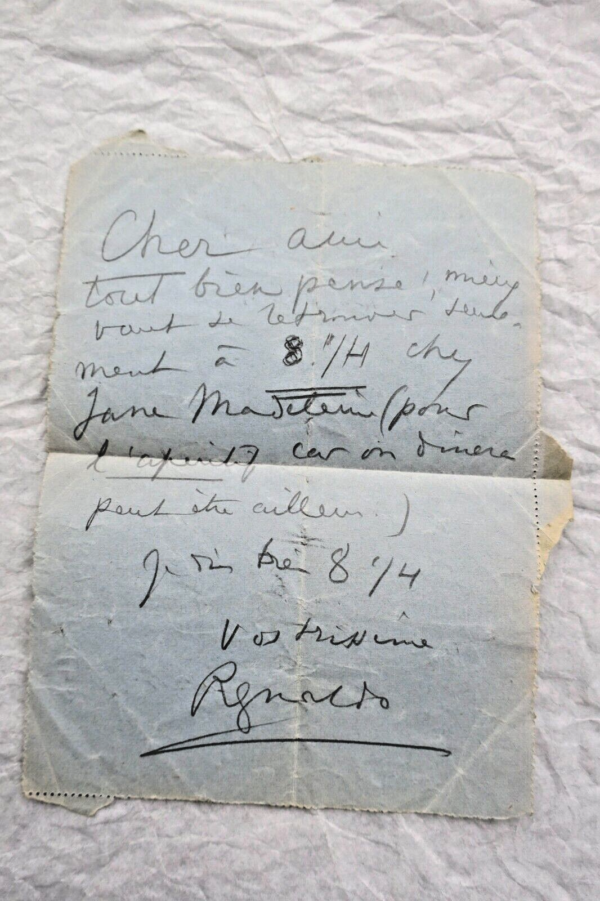 Cher ami
tout bien pensé, mieux
vaut se retrouver seule-
ment à 8 1/4 chez
Jane Madeleine (pour
l'apéritif car on dinera
peut être ailleurs.)
Je dis bien 8 1/4
Vostrissime
Reynaldo